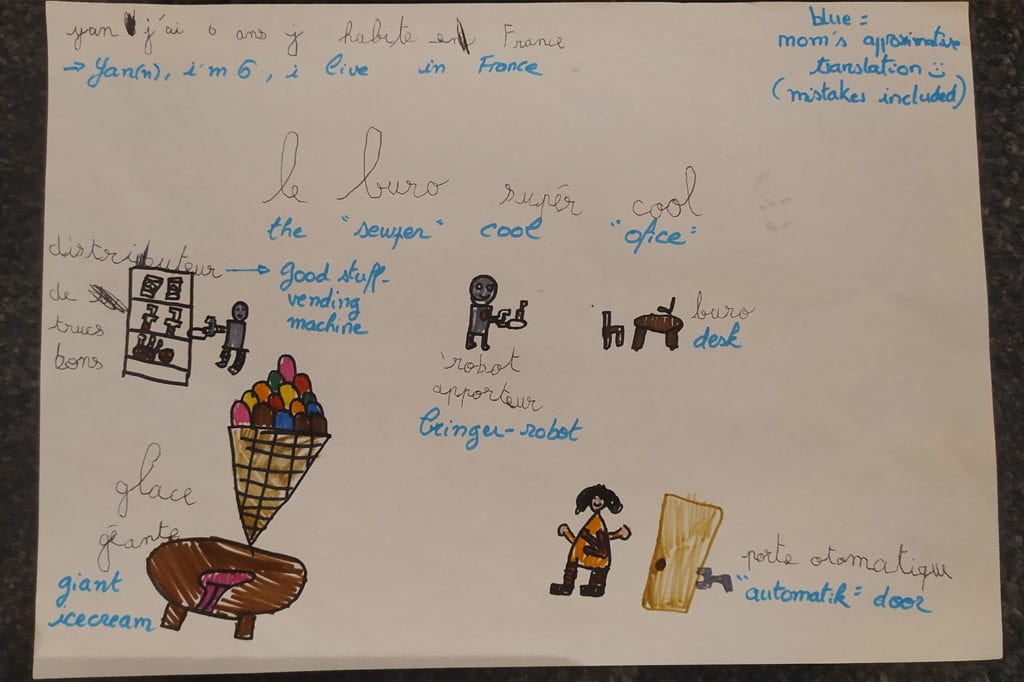 yan j'ai 6 ans j habite en France
→ Yan(n), i'm 6, i live in France
blue =
mom's approximative
translation
(mistakes included)
le buro supér cool
the "sewper" cool "ofice"
distributeur
de
trucs
bons
→ good stuff-
vending
machine
robot
apporteur
bringer-robot
buro
desk
glace
géante
giant
icecream
porte otomatique
"automatik" door